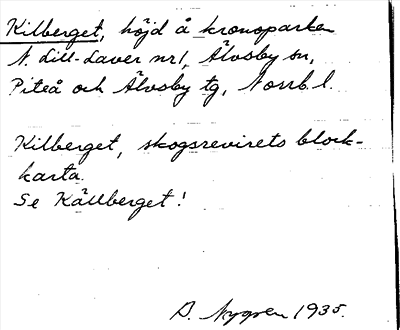 Kilberget, höjd å kronoparken
N. Lill-Laver nr 1, Älvsby sn,
Piteå och Älvsby tg, Norrb. l.
Kilberget, skogsrevirets block-
karta.
Se Källberget!
D. Nygren 1935.